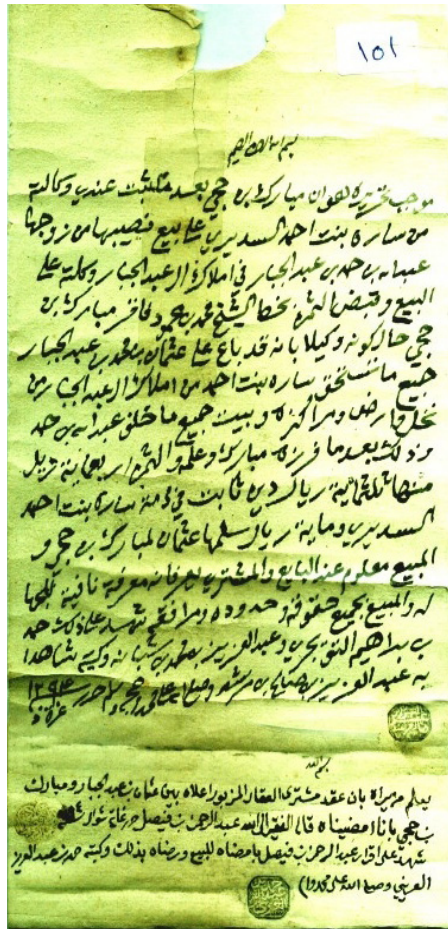 ١٥١
بسم الله الرحمن الرحيم
موجب تحريره هو ان مبارك بن حجي بعد ما ثبت عندي وكالته
من ساره بنت احمد السديري على بيع نصيبها من زوجها
عبدالله بن حمد بن عبدالجبار في املاك ال عبدالجبار وكلته على
البيع وقبض الثمن بخط الشيخ محمد بن محمود فاقر مبارك بن
حجي حال كونه وكيلا بانه قد باع على عثمان بن محمد بن عبدالجبار
جميع ما تستحق ساره بنت احمد من املاك ال عبدالجبار من
نخل وارض ومراكزه وبيت جميع ما خلف عبدالله بن حمد
وذلك بعد ما فرزه مبارك وعلمه والثمن اربعماية ريال
منها ثلثماية ريال دين ثابت في ذمة ساره بنت احمد
السديري وماية ريال سلمها عثمان لمبارك بن حجي و
المبيع معلوم عند البايع والمشتري يعرفانه معرفة نافية للجهالة
له والمبيع بجميع حقوقه وحدوده ومرافقه شهد على ذلك حمد
بن ابراهيم التويجري وعبدالعزيز بن محمد بن شبانه وكتبه شاهدا
به عبدالعزيز بن صالح بن مرشد وصلى الله على محمد وصحبه وسلم حرر ١٢٩٤
بسم الله
يعلم من يراه بان عقد مشترى العقار المزبور اعلاه بين عثمان بن عبدالجبار ومبارك
بن حجي بانا امضيناه قاله الفقير الى الله عبدالرحمن بن فيصل حرر غاية شوال
شهد على اقرار عبدالرحمن بن فيصل بامضاه للبيع ورضاه بذلك وكتبه حمد بن عبدالعزيز
العريني وصلى الله على محمد واله